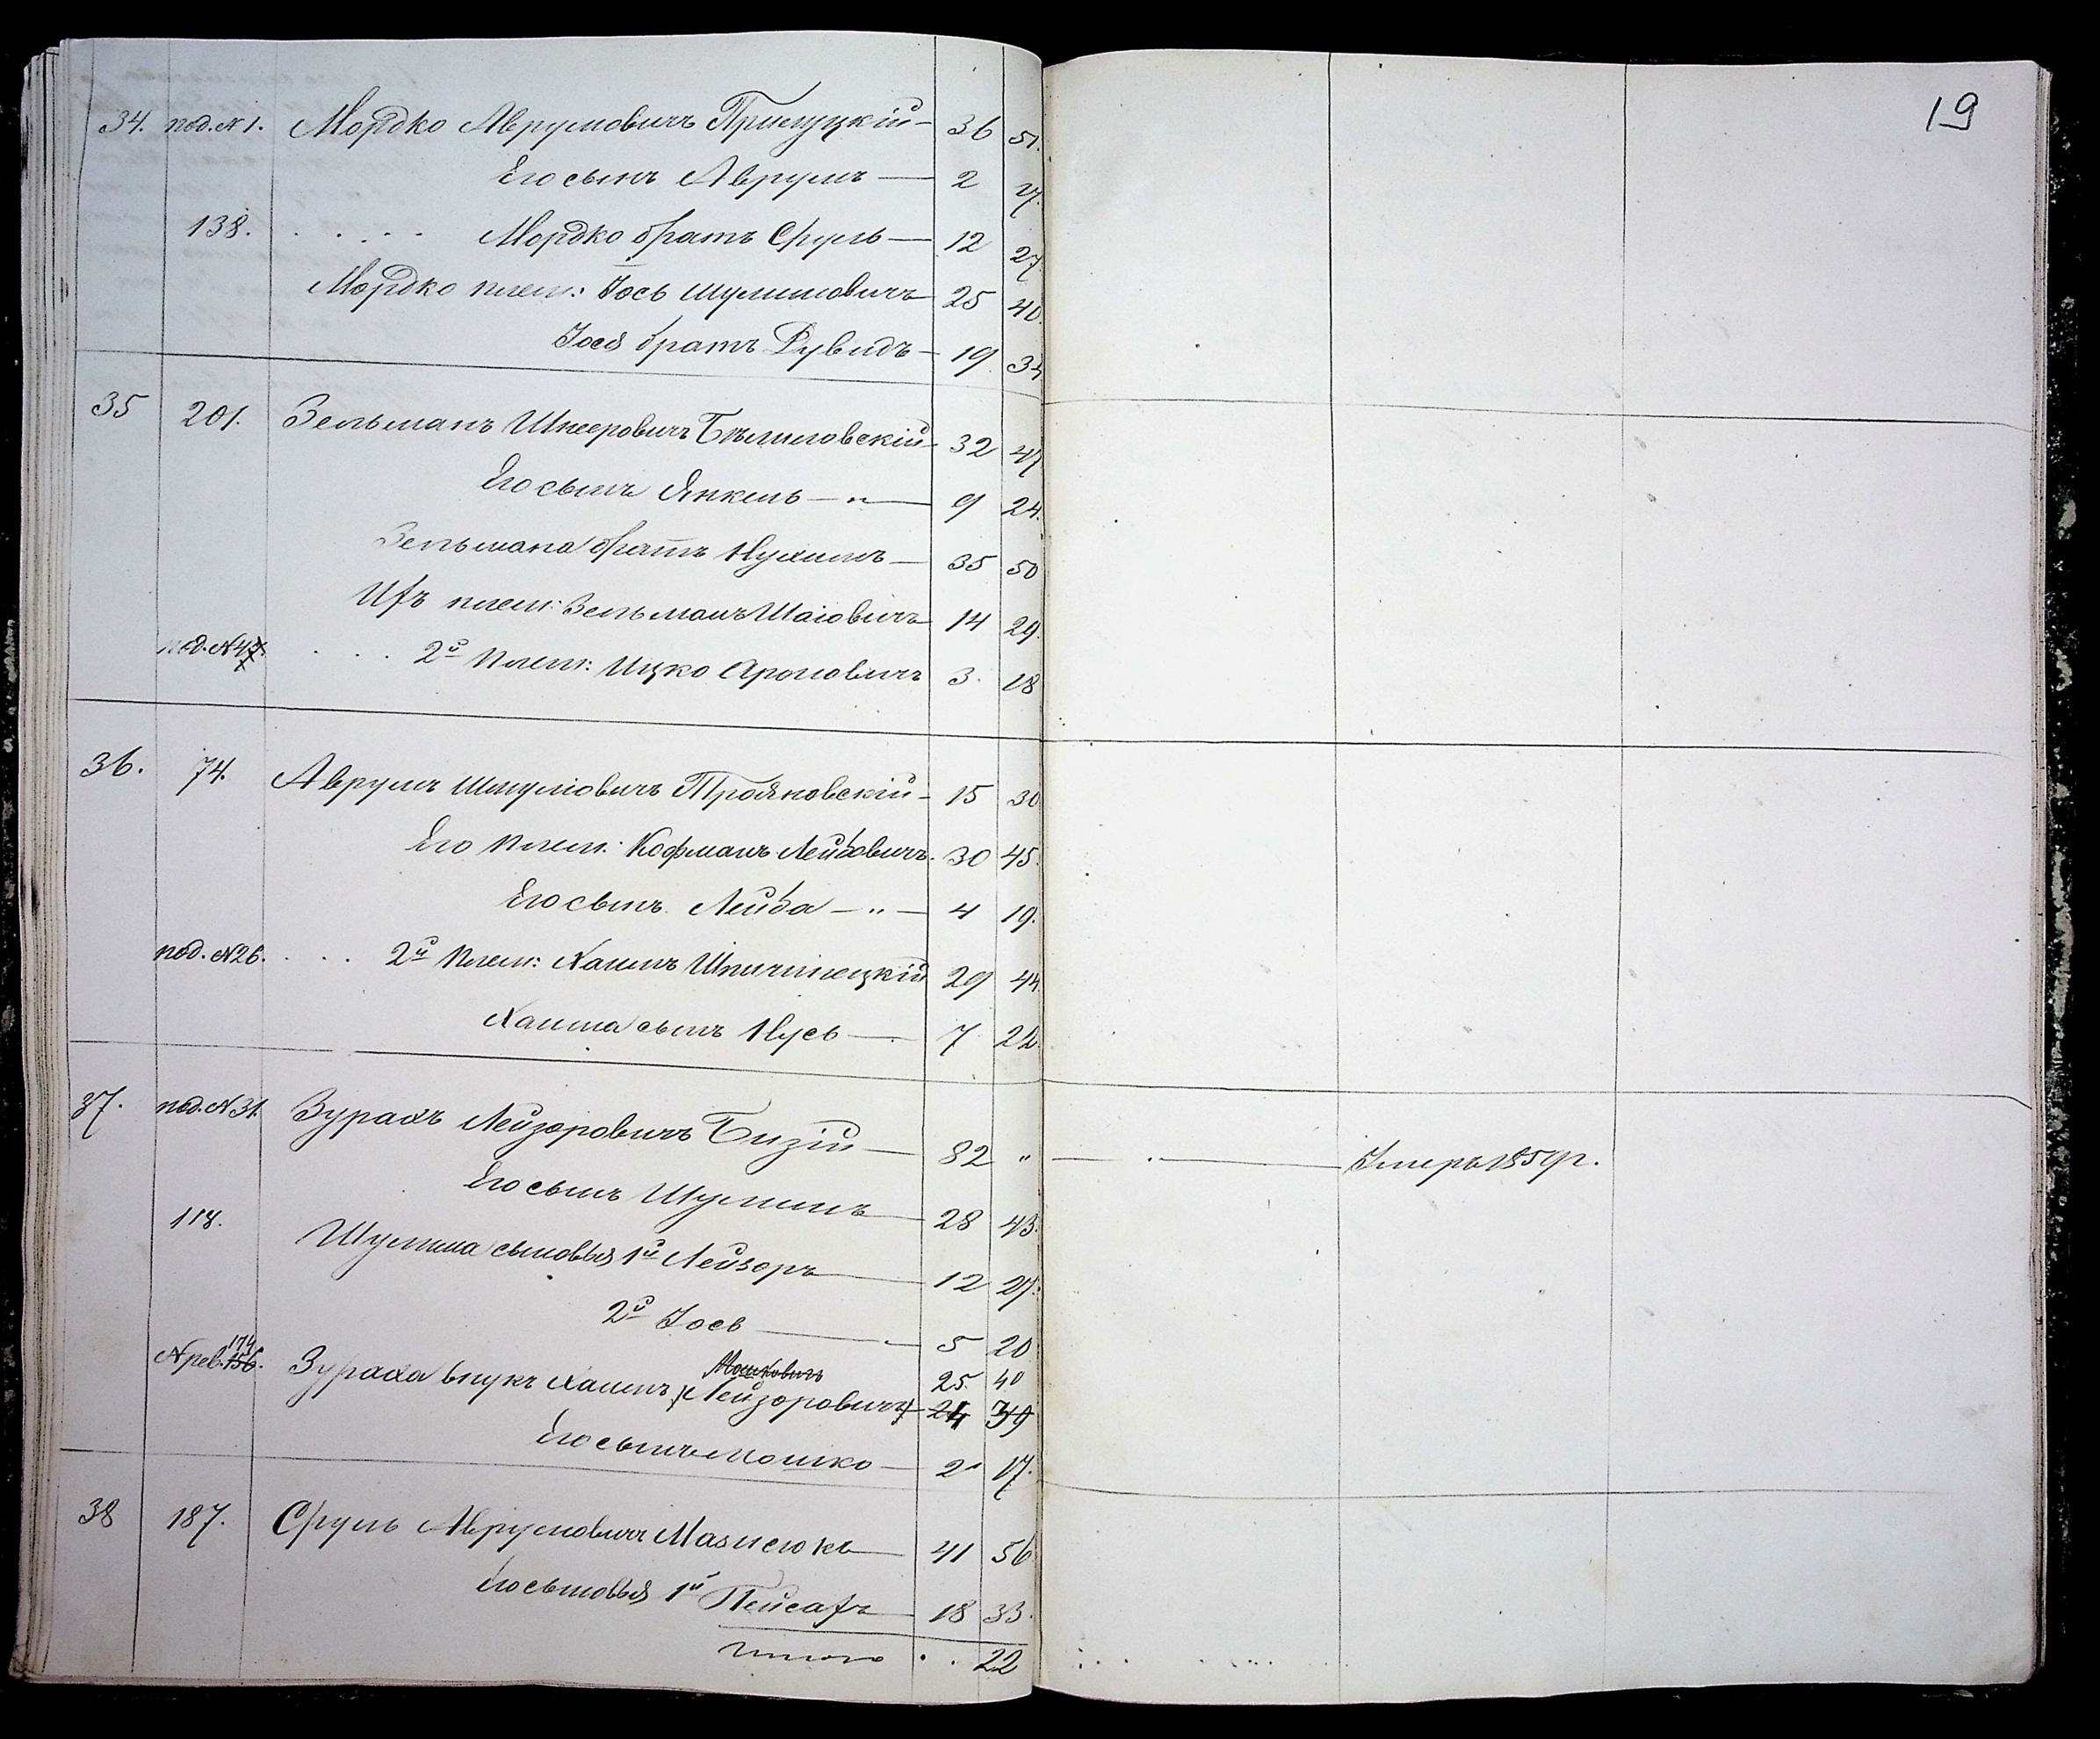 19
34. под. №1. Мордко Аврумовичъ Прилуцкій - 36 51.
Его сынъ Аврумъ — 2 17.
138. . . . . Мордко братъ Сруль — 12 27
Мордко плем: Іось Шулимовичъ 25 40.
Іося братъ Дувидъ - 19. 34
35 201. Зельманъ Шнееровичъ Бѣлиловскій - 32 47
Его сынъ Янкель — " — 9 24.
Зельмана братъ Нухимъ — 35 50
Ихъ плем: Зельманъ Шаіовичъ 14 29.
под. №4 . . . 2й Плем: Ицко Ароновичъ 3. 18
36. 74. Аврумъ Шмуліовичъ Трояновскій - 15 30
Его Плем: Кофманъ Лейбовичъ. 30 45.
Его сынъ Лейба — " — 4 19.
под. №26. . . . 2й Плем: Хаимъ Шпичинецкій 29 44.
Хаима сынъ Нусь — 7 22.
37. под. №31. Зурахъ Лейзоровичъ Бизій — 82 " — . — Умеръ 1859г.
Его сынъ Шулимъ — 28 43.
118. Шулима сыновья 1й Лейзоръ — 12 27.
2й Іось — 5 20
Мошковичъ 25. 40
№ рев. 174 156. Зураха внукъ Хаимъ (Лейзоровичъ) - 24 39
Его сынъ Мошко — 2 17.
38 187. Сруль Аврумовичъ Мазисюкъ — 41 56
Его сыновья 1й Пейсахъ — 18 33.
Итого . . 22